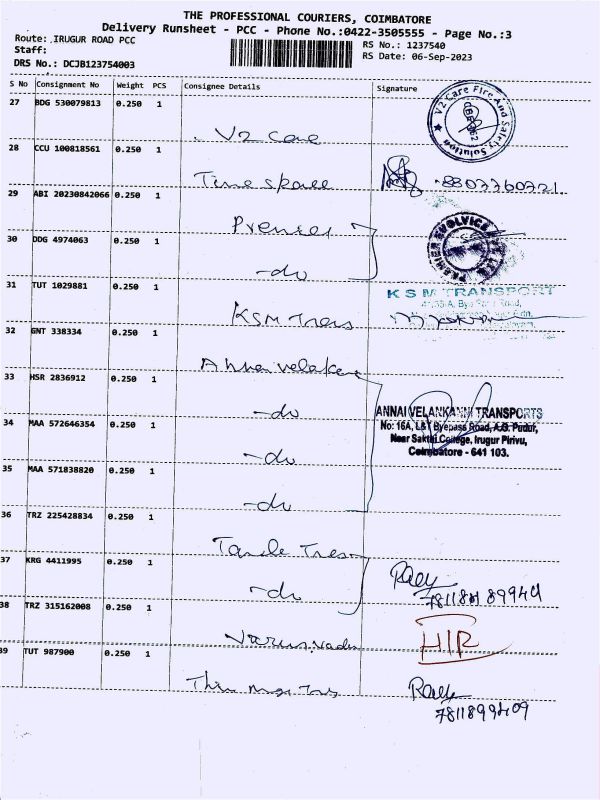 THE PROFESSIONAL COURIERS, COIMBATORE
Delivery Runsheet - PCC - Phone No.:0422-3505555 - Page No.:3
Route: IRUGUR ROAD PCC
RS No.: 1237540
Staff:
RS Date: 06-Sep-2023
DRS No.: DCJB123754003
S No Consignment No Weight PCS Consignee Details Signature
27 BDG 530079813 0.250 1
V2 Care
V2 Care Fire And Safety Solution
28 CCU 100818561 0.250 1
Time space 8807760721
29 ABI 20230842066 0.250 1
Premier
30 DDG 4974063 0.250 1
-do
31 TUT 1029881 0.250 1
K S M TRANSPORT
KSM Trans
32 GNT 338334 0.250 1
Annai velakan
33 HSR 2836912 0.250 1
-do
ANNAI VELANKANNI TRANSPORTS
No: 16A, L&T Byepass Road, A.G. Pudur,
Near Sakthi College, Irugur Pirivu,
Coimbatore - 641 103.
34 MAA 572646354 0.250 1
-do
35 MAA 571838820 0.250 1
-do
36 TRZ 225428834 0.250 1
37 KRG 4411995 0.250 1
-do
38 TRZ 315162008 0.250 1
39 TUT 987900 0.250 1
7811899409